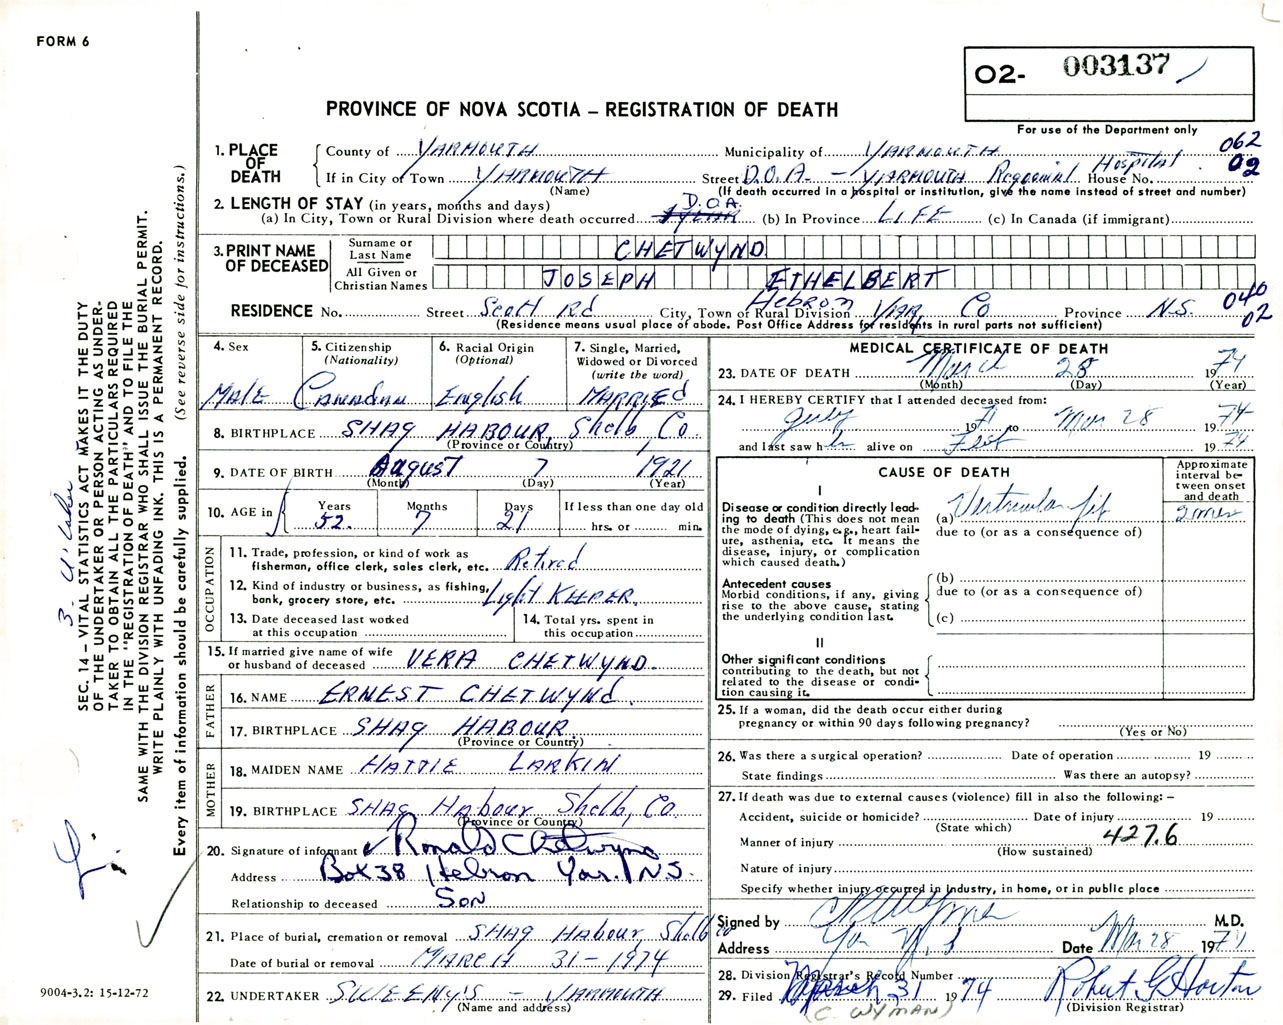 FORM 6
O2- 003137
For use of the Department only
PROVINCE OF NOVA SCOTIA – REGISTRATION OF DEATH
062
02
1. PLACE OF DEATH
County of YARMOUTH Municipality of YARMOUTH
If in City or Town YARMOUTH Street D.O.A. – YARMOUTH Regional Hospital House No.
(Name) (If death occurred in a hospital or institution, give the name instead of street and number)
2. LENGTH OF STAY (in years, months and days)
(a) In City, Town or Rural Division where death occurred D.O.A. (b) In Province LIFE (c) In Canada (if immigrant)
3. PRINT NAME OF DECEASED
Surname or Last Name CHETWYND
All Given or Christian Names JOSEPH ETHELBERT
RESIDENCE No. Street Scott Rd City, Town or Rural Division Hebron Yar Co Province N.S.
040
02
(Residence means usual place of abode. Post Office Address for residents in rural parts not sufficient)
4. Sex Male
5. Citizenship (Nationality) Canadian
6. Racial Origin (Optional) English
7. Single, Married, Widowed or Divorced (write the word) MARRIEd
8. BIRTHPLACE SHAG HABOUR, Shelb, Co.
(Province or Country)
9. DATE OF BIRTH August 7 1921
(Month) (Day) (Year)
10. AGE in Years 52. Months 7 Days 21 If less than one day old hrs. or min.
OCCUPATION
11. Trade, profession, or kind of work as fisherman, office clerk, sales clerk, etc. Retired
12. Kind of industry or business, as fishing, bank, grocery store, etc. Light KEEPER.
13. Date deceased last worked at this occupation
14. Total yrs. spent in this occupation
15. If married give name of wife or husband of deceased VERA CHETWYND.
FATHER
16. NAME ERNEST CHETWYNd.
17. BIRTHPLACE SHAG HABOUR.
(Province or Country)
MOTHER
18. MAIDEN NAME HATTIE LARKIN
19. BIRTHPLACE SHAG Habour Shelb, Co.
(Province or Country)
20. Signature of informant Ronald Chetwynd
Address Box 38 Hebron Yar. N.S.
Relationship to deceased Son
21. Place of burial, cremation or removal SHAG Habour, Shelb co
Date of burial or removal MARCH 31-1974
22. UNDERTAKER SWEENY'S – YARMOUTH
(Name and address)
MEDICAL CERTIFICATE OF DEATH
23. DATE OF DEATH March 28 1974
(Month) (Day) (Year)
24. I HEREBY CERTIFY that I attended deceased from:
July 1971 to Mar 28 1974
and last saw h alive on 1974
CAUSE OF DEATH
Approximate interval between onset and death
I
Disease or condition directly leading to death (This does not mean the mode of dying, e.g., heart failure, asthenia, etc. It means the disease, injury, or complication which caused death.)
(a) Ventricular fib
due to (or as a consequence of)
Antecedent causes
Morbid conditions, if any, giving rise to the above cause, stating the underlying condition last.
(b)
due to (or as a consequence of)
(c)
II
Other significant conditions contributing to the death, but not related to the disease or condition causing it.
25. If a woman, did the death occur either during pregnancy or within 90 days following pregnancy?
(Yes or No)
26. Was there a surgical operation? Date of operation 19
State findings Was there an autopsy?
27. If death was due to external causes (violence) fill in also the following: –
Accident, suicide or homicide? Date of injury 19
(State which)
Manner of injury 427.6
(How sustained)
Nature of injury
Specify whether injury occurred in Industry, in home, or in public place
Signed by M.D.
Address Yar N.S Date Mar 28 1974
28. Division Registrar's Record Number
29. Filed March 31 1974 Robert G Horton
(C. WYMAN) (Division Registrar)
SEC. 14 – VITAL STATISTICS ACT MAKES IT THE DUTY
OF THE UNDERTAKER OR PERSON ACTING AS UNDER-
TAKER TO OBTAIN ALL THE PARTICULARS REQUIRED
IN THE "REGISTRATION OF DEATH" AND TO FILE THE
SAME WITH THE DIVISION REGISTRAR WHO SHALL ISSUE THE BURIAL PERMIT.
WRITE PLAINLY WITH UNFADING INK. THIS IS A PERMANENT RECORD.
Every item of information should be carefully supplied. (See reverse side for instructions.)
9004-3.2: 15-12-72